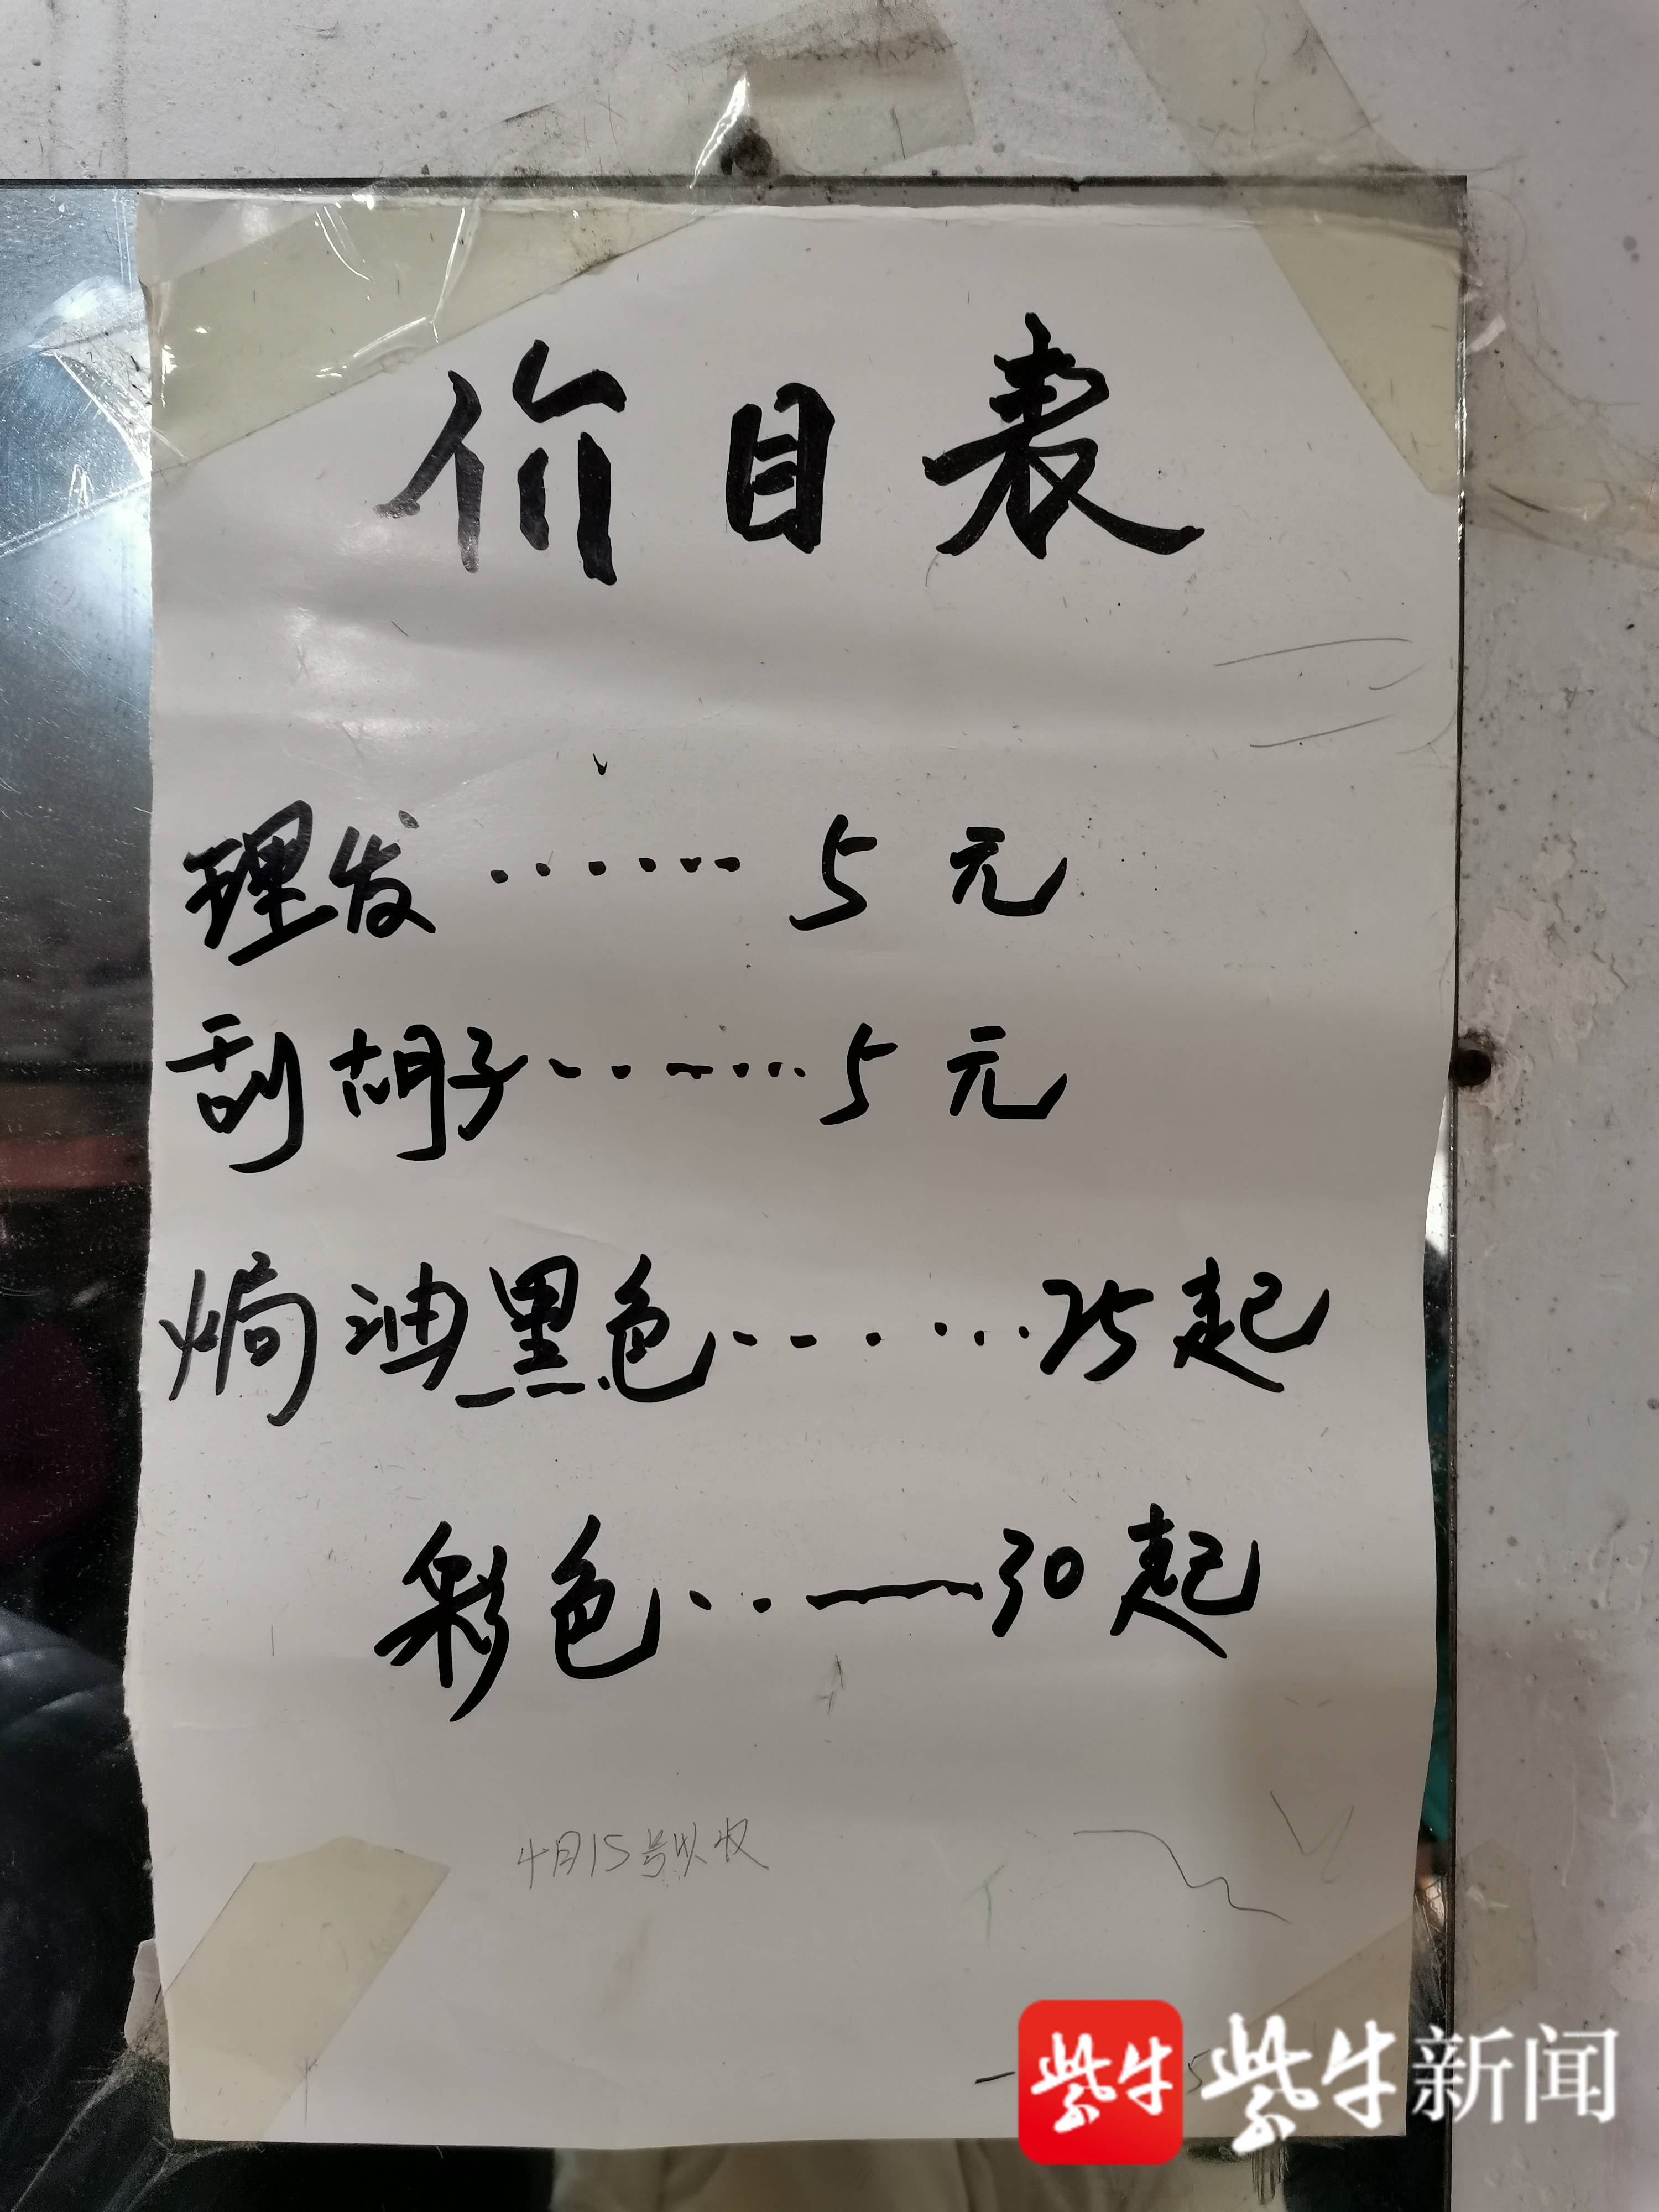 价目表
理发······5元
刮胡子······5元
焗油黑色······25起
彩色······30起
4月15号
紫牛 紫牛新闻